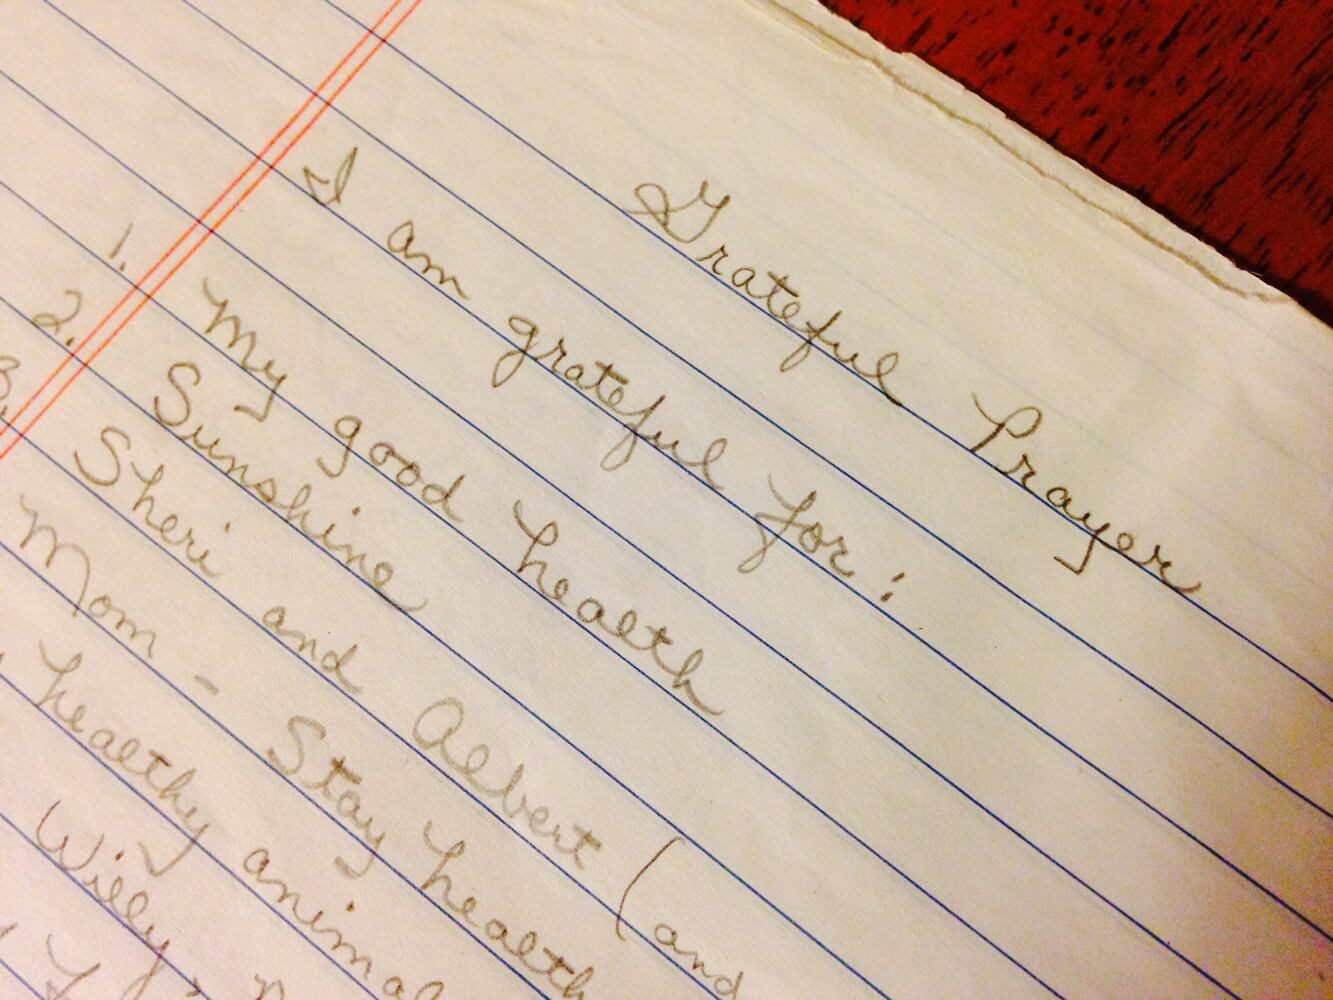 Grateful Prayer
I am grateful for:
1. My good health
2. Sunshine
3. Sheri and Albert (and
Mom - Stay health
healthy animal
Willy